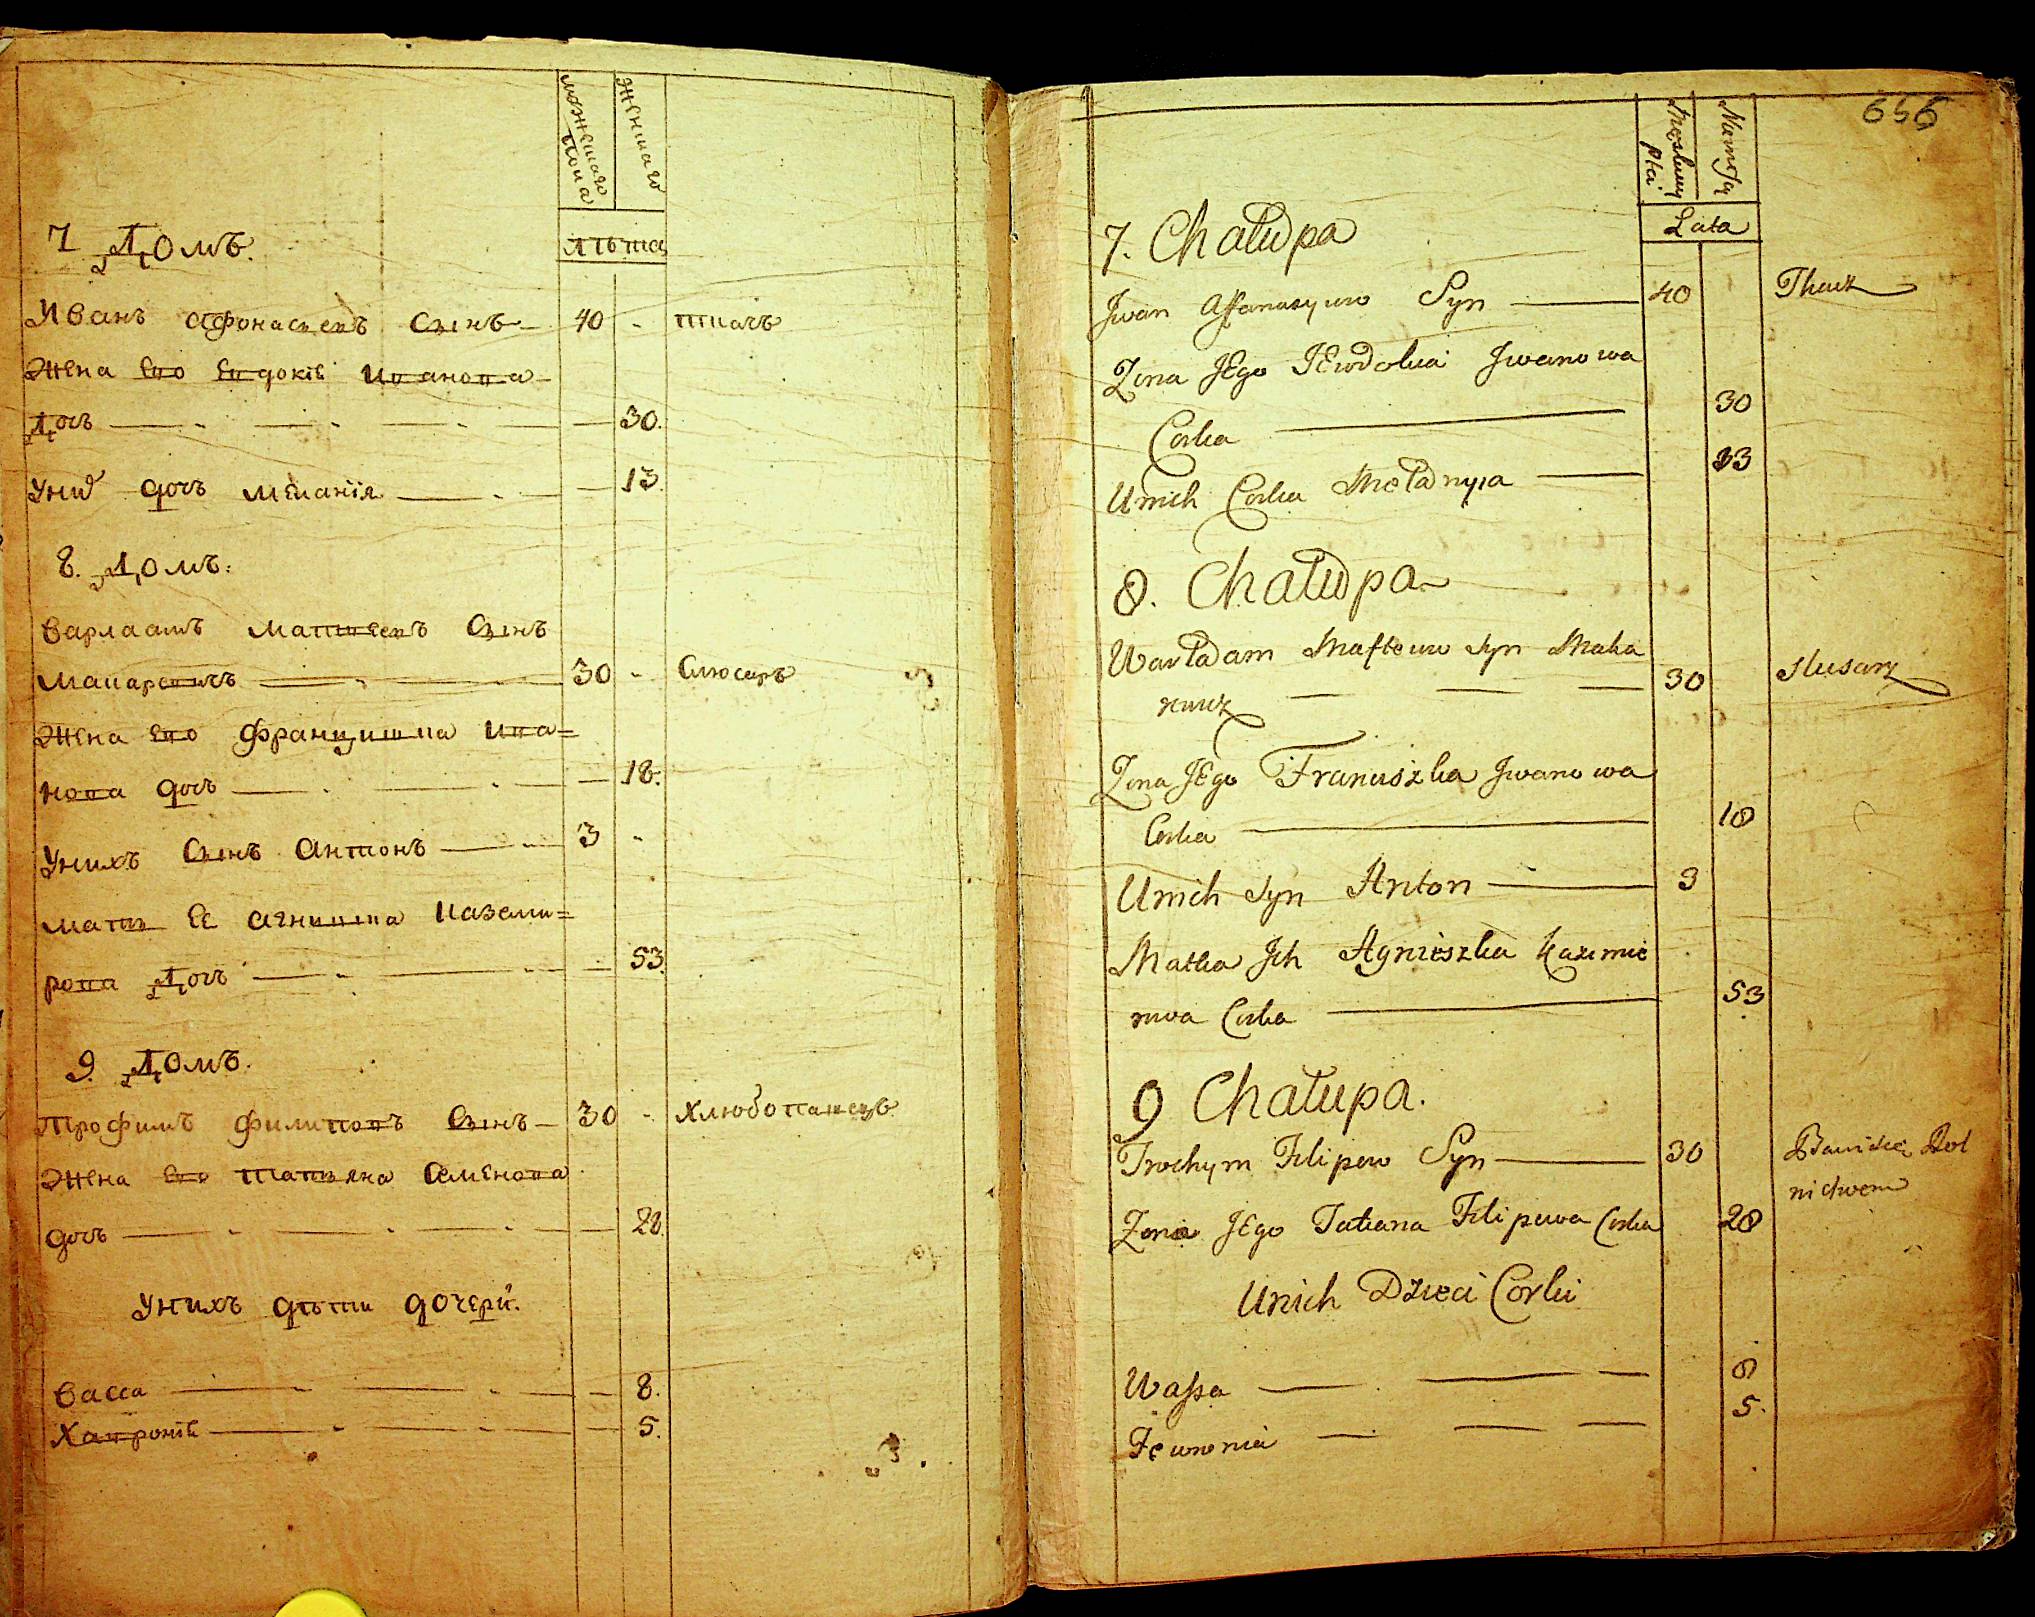 мужескаго пола
женскаго
лѣта
7 Домъ.
Иванъ Афонасиевъ сынъ — 40 - ткачъ
Жена его Евдокіѣ Иванова
дочъ — 30.
У нихъ дочъ Меланія — 13
8. Домъ:
Варлаамъ Матвеевъ сынъ
Макаревичъ — 30 - Слюсаръ
Жена его Францишка Ива=
нова дочъ — 18.
У нихъ сынъ Антонъ — 3 -
Мать ее Агнишка Каземи=
рова дочъ — 53.
9. Домъ.
Трофимъ Филиповъ сынъ — 30 - Хлюбопашецъ
Жена его Татьяна Семенова
дочъ — 28.
У нихъ дѣти дочери.
Васса — 8.
Хавроніѣ — 5.
656
Męskiey Płci
Lata
7. Chałupa
Jwan Affanasyiew Syn — 40 Tkacz
Zona JEgo JEwdokia Jwanowa
Corka — 30
Unich Corka Mełanyia — 13
8. Chałupa
Warłaam Maftewu Syn Maka
rewicz — 30 Slusarz
Zona JEgo Franciszka Jwanowa
Corka — 18
Unich Syn Anton — 3
Matka Jch Agnieszka Kazimie
rowa Corka — 53
9 Chałupa.
Trochym Filipow Syn — 30 Bawi się Rol
nictwem
Zona JEgo Tatiana Filipowa Corka 28
Unich Dzieci Corki
Wassa — 8
Fewronia — 5.